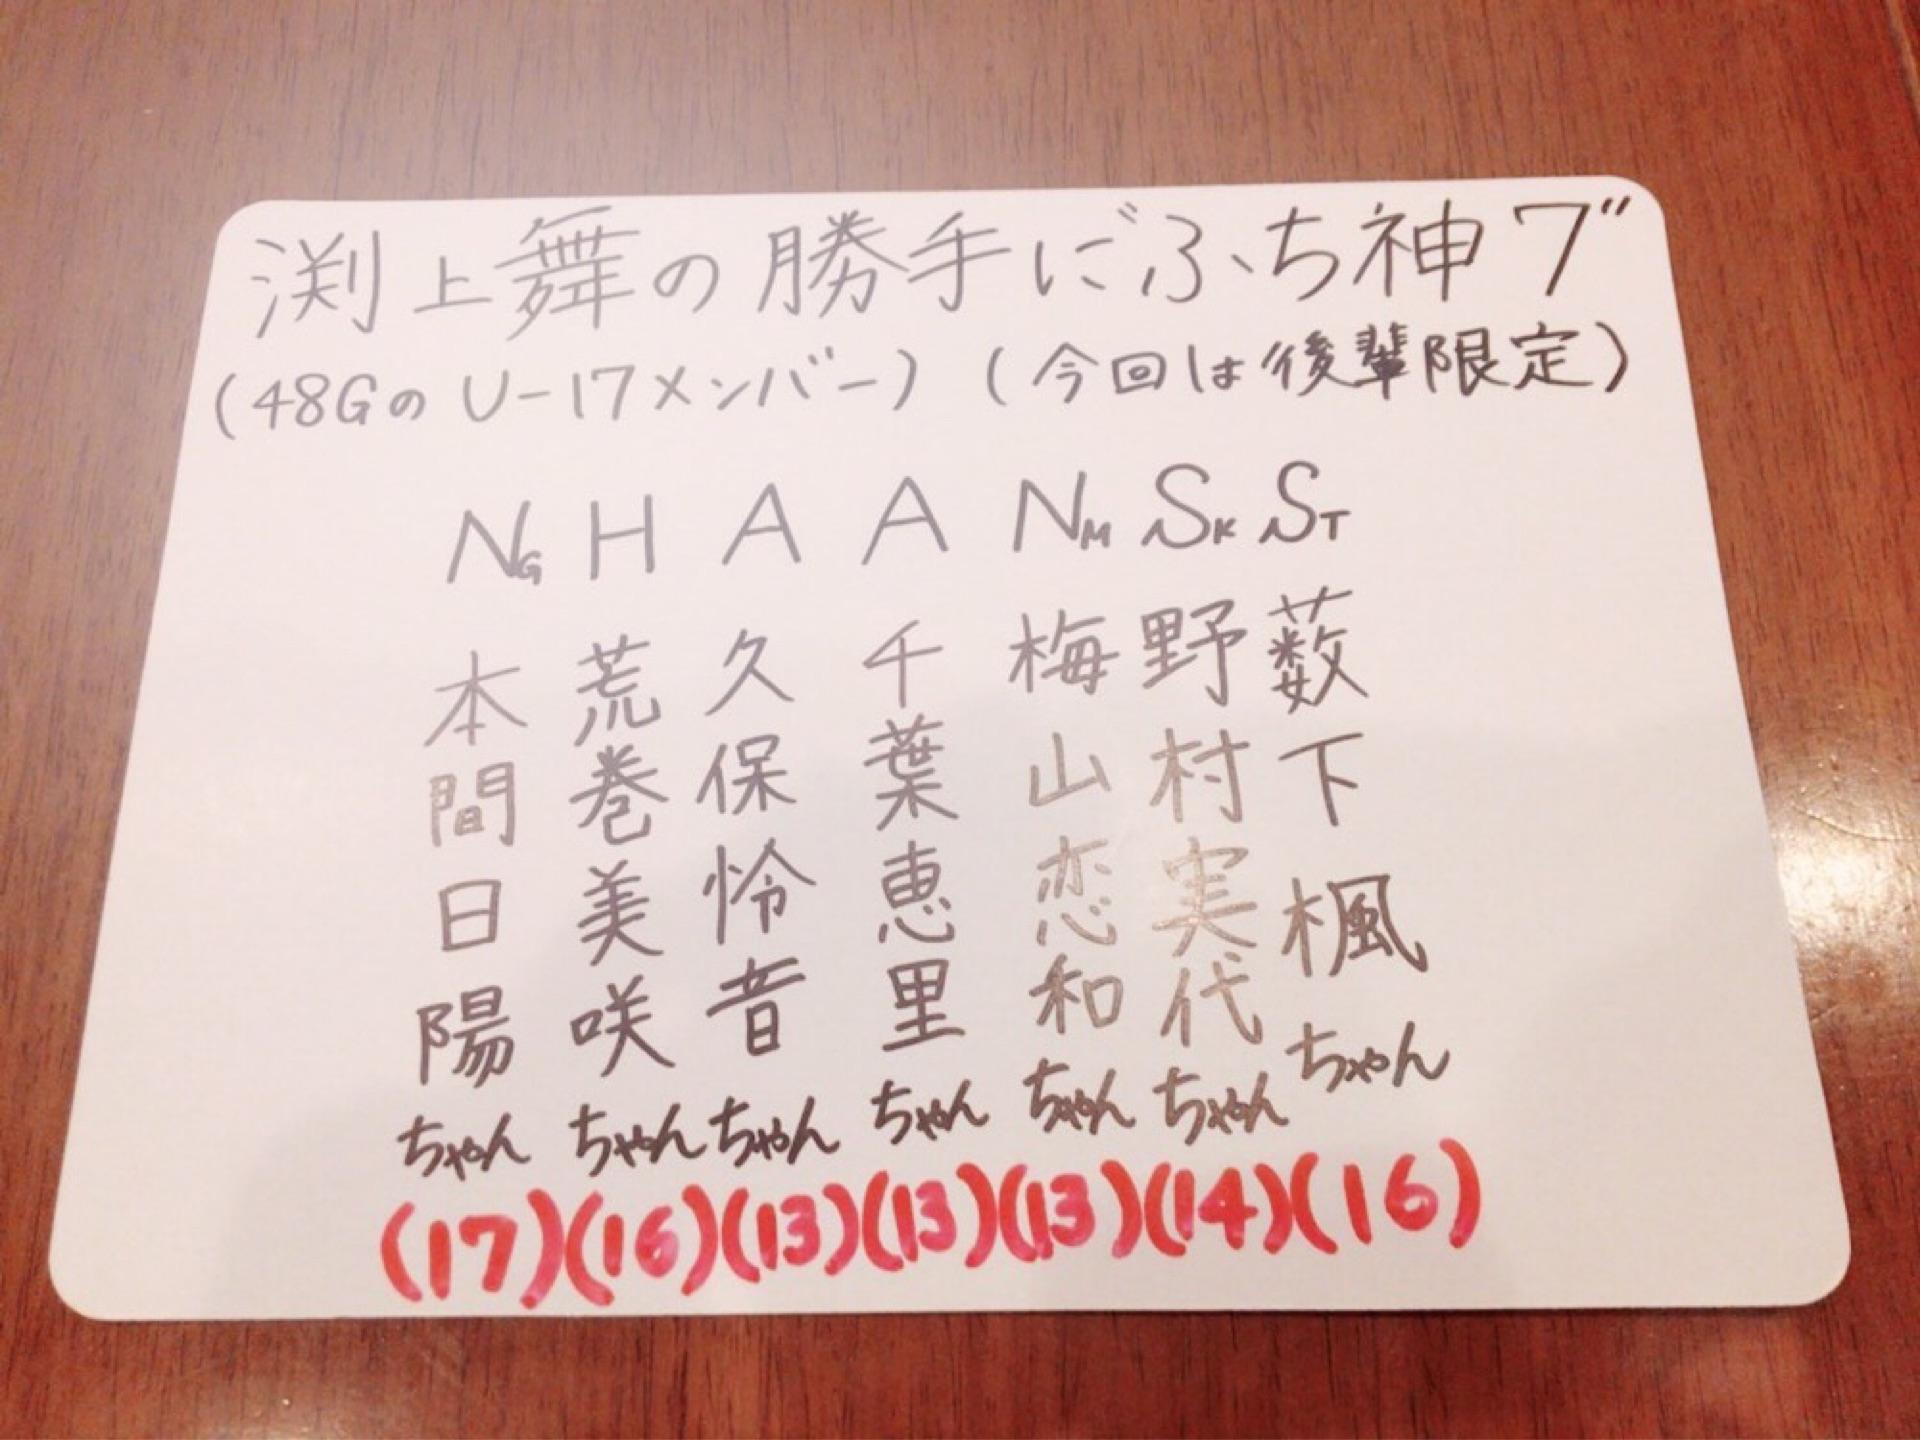 渕上舞の勝手に"ふち神7"
(48GのU-17メンバー)(今回は後輩限定)
NG H A A NM SK ST
本間日陽ちゃん
荒巻美咲ちゃん
久保怜音ちゃん
千葉恵里ちゃん
梅山恋和ちゃん
野村実代ちゃん
薮下楓ちゃん
(17)(16)(13)(13)(13)(14)(16)